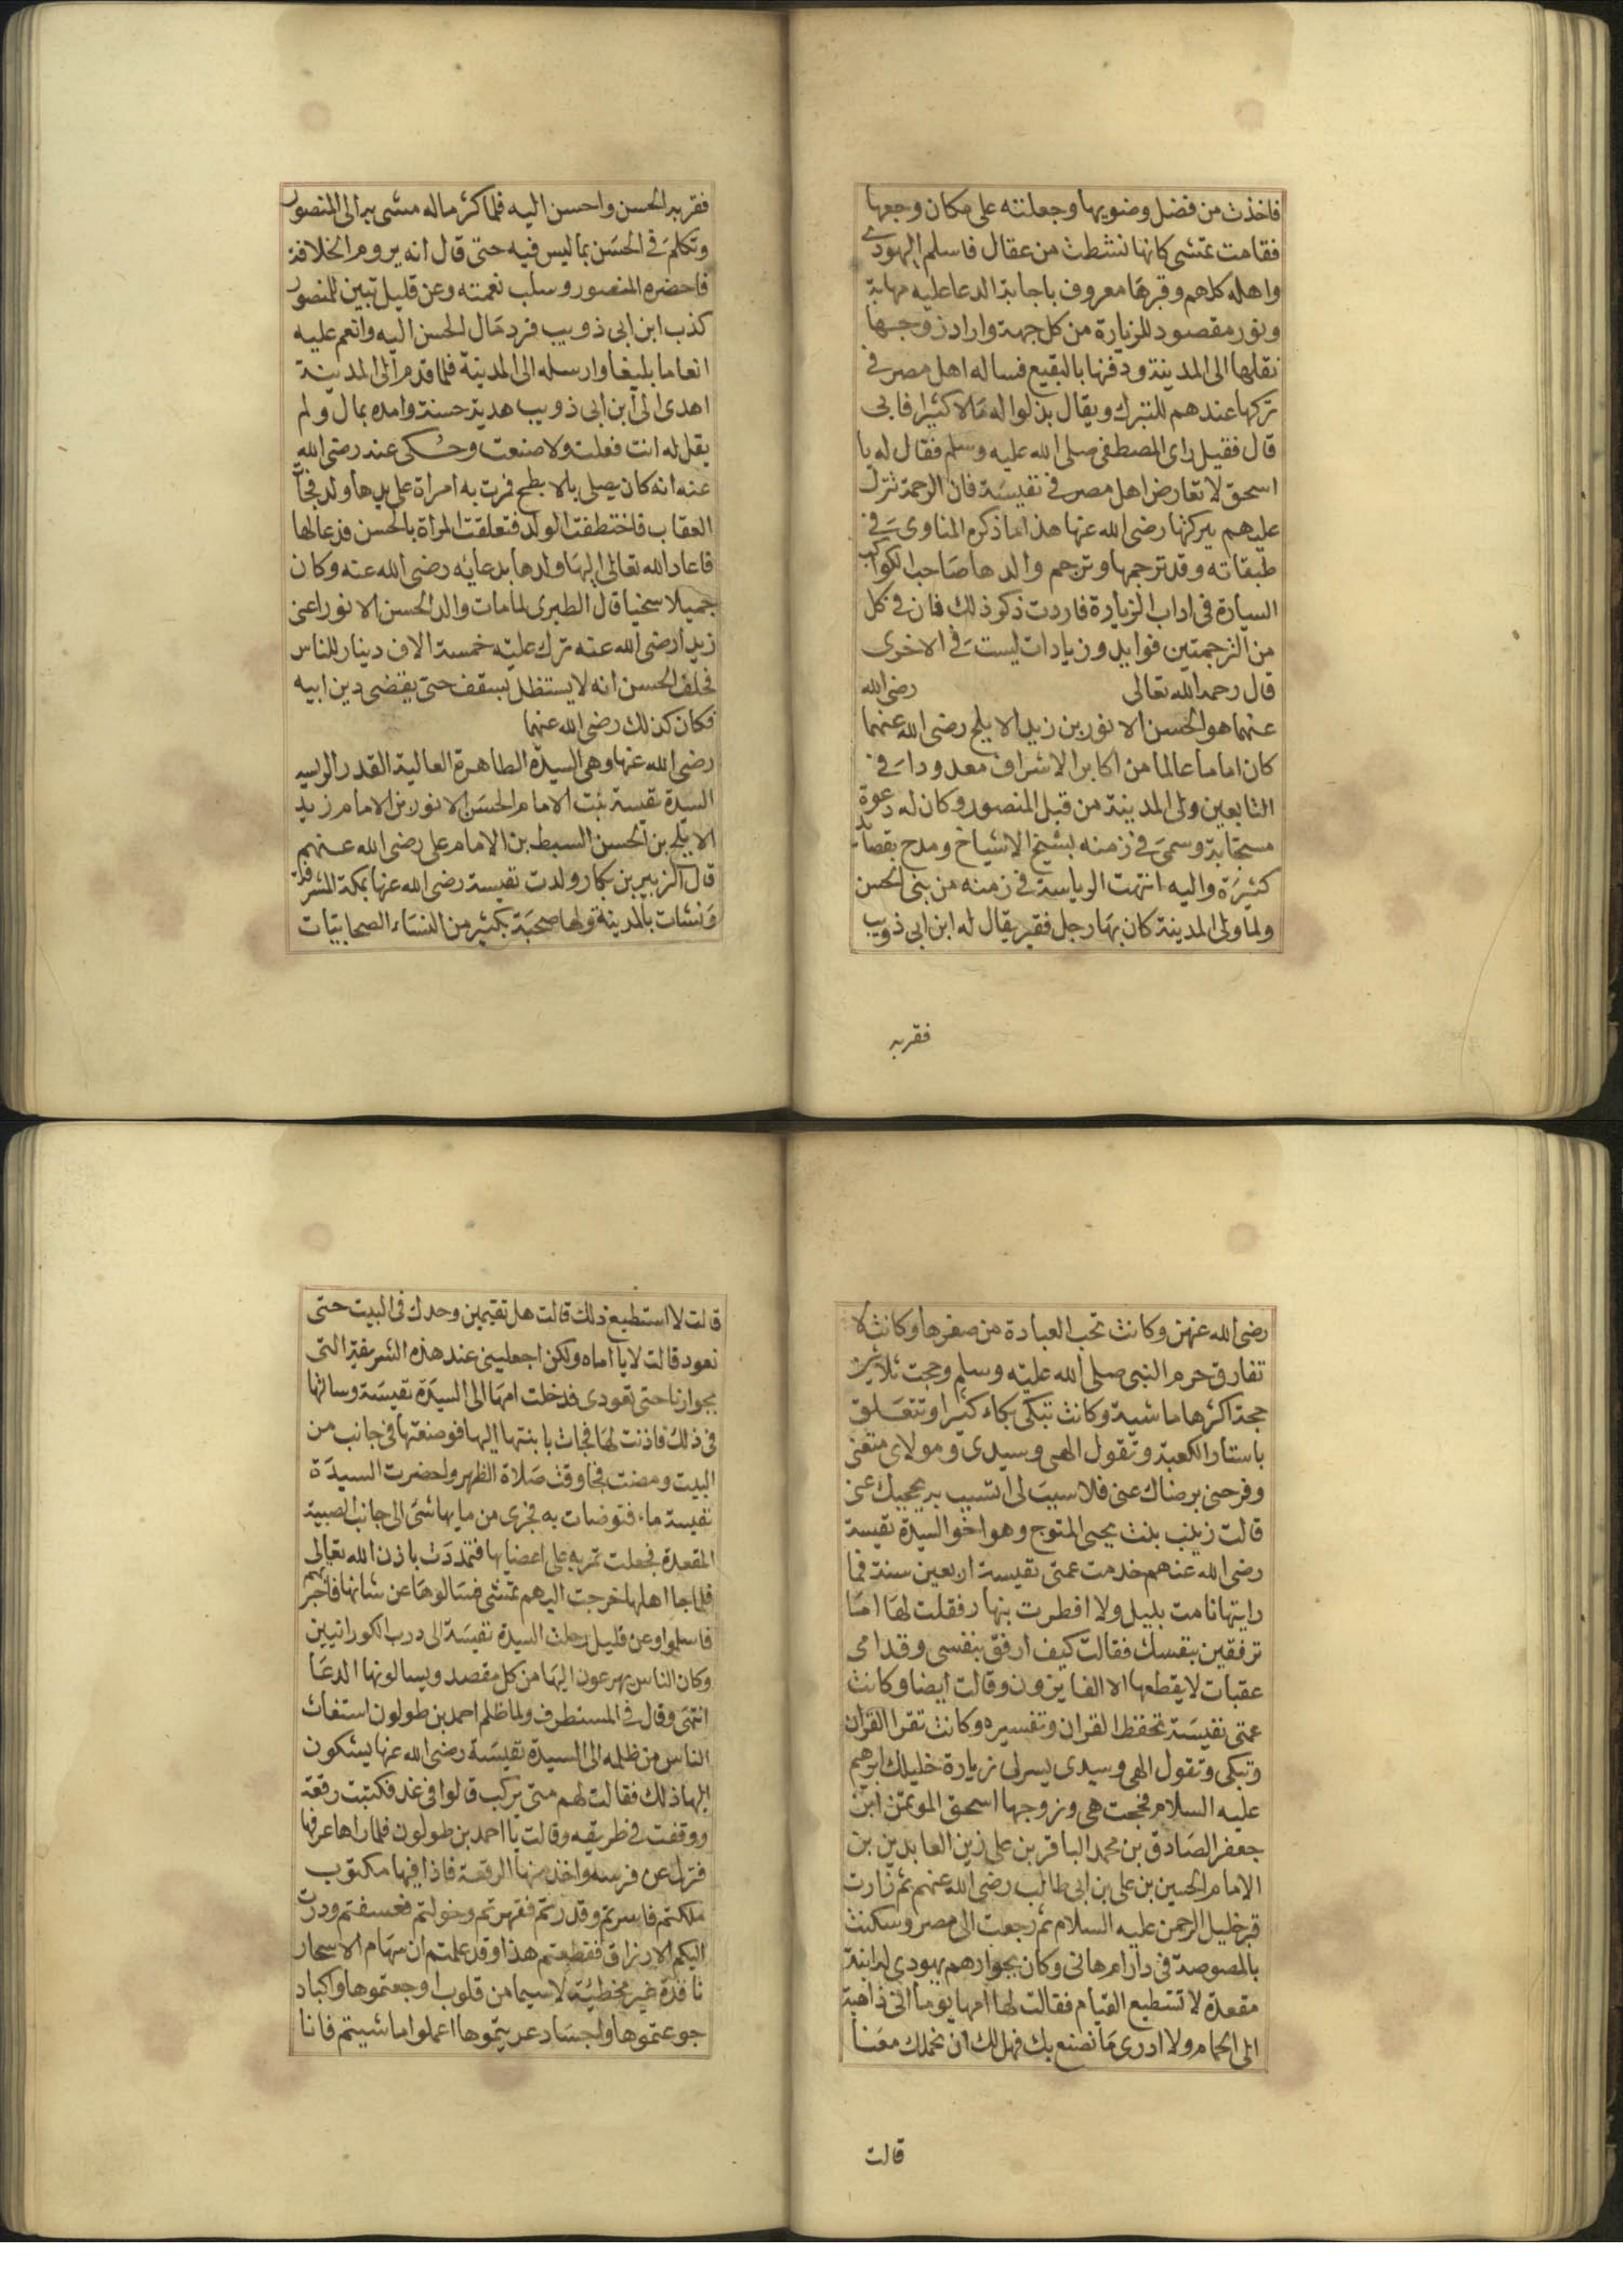 فاخذت من فضل وضويها وجعلته على مكان وجعها
فقامت تمشى كانها نشطت من عقال فاسلم اليهودى
واهله كلهم وقبرها معروف باجابة الدعا عليه مهابة
ونور مقصود للزيارة من كل جهة واراد زوجها
نقلها الى المدينة ودفنها بالبقيع فساله اهل مصر فى
تركها عندهم للتبرك ويقال بذلوا له مالا كثيرا فابى
قال فقيل راى المصطفى صلى الله عليه وسلم فقال له يا
اسحق لا تعارض اهل مصر فى نفيسة فان الرحمة تنزل
عليهم ببركتها رضى الله عنها هذا ما ذكره المناوى فى
طبقاته وقد ترجمها وترجم والدها صاحب الكواكب
السيارة فى اداب الزيارة فاردت ذكر ذلك فان فى كل
من الترجمتين فوايد وزيادات ليست فى الاخرى
قال رحمه الله تعالى رضى الله
عنهما هو الحسن الانور بن زيد الابلج رضى الله عنهما
كان اماما عالما من اكابر الاشراف معدودا فى
التابعين ولى المدينة من قبل المنصور وكان له دعوة
مستجابة وسمى فى زمنه بشيخ الاشياخ ومدح بقصايد
كثيرة واليه انتهت الرياسة فى زمنه من بنى الحسن
ولما ولى المدينة كان بها رجل فقير يقال له ابن ابى ذويب
فقربه
فقربه الحسن واحسن اليه فلما كثر ماله مشى به الى المنصور
وتكلم فى الحسن بما ليس فيه حتى قال انه يروم الخلافة
فاحضره المنصور وسلب نعمته وعن قليل تبين للمنصور
كذب ابن ابى ذويب فرد مال الحسن اليه وانعم عليه
انعاما بليغا وارسله الى المدينة فلما قدم الى المدينة
اهدى الى ابن ابى ذويب هدية حسنة وامده بمال ولم
يقل له انت فعلت ولا صنعت وحكى عند رضى الله
عنه انه كان يصلى بالابطح فمرت به امراة على يدها ولد فجا
العقاب فاختطف الولد فتعلقت المراة بالحسن فدعا لها
فاعاد الله تعالى اليها ولدها بدعايه رضى الله عنه وكان
جميلا سخيا قال الطبرى لما مات والد الحسن الانور اعنى
زيدا رضى الله عنه ترك عليه خمسة الاف دينار للناس
فحلف الحسن انه لا يستظل بسقف حتى يقضى دين ابيه
فكان كذلك رضى الله عنهما
رضى الله عنها وهى السيدة الطاهرة العالية القدر
السيدة نفيسة بنت الامام الحسن الانور بن الامام زيد
الابلج بن الحسن السبط بن الامام على رضى الله عنهم
قال الزبير بن بكار ولدت نفيسة رضى الله عنها بمكة المشرفة
ونشات بالمدينة ولها صحبة بكثير من النساء الصحابيات
رضى الله عنهن وكانت تحب العبادة من صغرها وكانت لا
تفارق حرم النبى صلى الله عليه وسلم وحجت ثلاثين
حجة اكثرها ماشية وكانت تبكى بكاء كثيرا وتتعلق
باستار الكعبة وتقول الهى وسيدى ومولاى متعنى
وفرحنى برضاك عنى فلا سبب لى اتسبب به يحجبك عنى
قالت زينب بنت يحيى المتوج وهو اخو السيدة نفيسة
رضى الله عنهم خدمت عمتى نفيسة اربعين سنة فما
رايتها نامت بليل ولا افطرت بنهار فقلت لها اما
ترفقين بنفسك فقالت كيف ارفق بنفسى وقدامى
عقبات لا يقطعها الا الفايزون وقالت ايضا وكانت
عمتى نفيسة تحفظ القران وتفسيره وكانت تقرا القران
وتبكى وتقول الهى وسيدى يسر لى زيارة خليلك ابرهيم
عليه السلام فحجت هى وزوجها اسحق الموتمن ابن
جعفر الصادق بن محمد الباقر بن على زين العابدين بن
الامام الحسين بن على بن ابى طالب رضى الله عنهم ثم زارت
قبر خليل الرحمن عليه السلام ثم رجعت الى مصر وسكنت
بالمصوصة فى دار ام هانى وكان بجوارهم يهودى له ابنة
مقعدة لا تستطيع القيام فقالت لها امها يوما انى ذاهبة
الى الحمام ولا ادرى ما نصنع بك فهل لك ان نحملك معنا
قالت
قالت لا استطيع ذلك قالت هل تقيمين وحدك فى البيت حتى
نعود قالت لا يا اماه ولكن اجعلينى عند هذه الشريفة التى
بجوارنا حتى تعودى فدخلت امها الى السيدة نفيسة وسالتها
فى ذلك فاذنت لها فجات بابنتها اليها فوضعتها فى جانب من
البيت ومضت فجا وقت صلاة الظهر ولحضرت السيدة
نفيسة ماء فتوضات به فجرى من مايها شى الى جانب الصبية
المقعدة فجعلت تمر به على اعضايها فتمددت باذن الله تعالى
فلما جا اهلها خرجت اليهم تمشى فسالوها عن شانها فاخبرتهم
فاسلموا وعن قليل رحلت السيدة نفيسة الى درب الكورانيين
وكان الناس يهرعون اليها من كل مقصد ويسالونها الدعا
انتهى وقال فى المستطرف ولما ظلم احمد بن طولون استغاث
الناس من ظلمه الى السيدة نفيسة رضى الله عنها يشكون
اليها ذلك فقالت لهم متى يركب قالوا فى غد فكتبت رقعة
ووقفت فى طريقه وقالت يا احمد بن طولون فلما راها عرفها
فنزل عن فرسه واخذ منها الرقعة فاذا فيها مكتوب
ملكتم فاسرتم وقدرتم فقهرتم وخولتم فعسفتم ودرت
اليكم الارزاق فقطعتم هذا وقد علمتم ان سهام الاسحار
نافذة غير مخطئة لا سيما من قلوب اوجعتموها واكباد
جوعتموها واجساد عريتموها اعملوا ما شيتم فانا